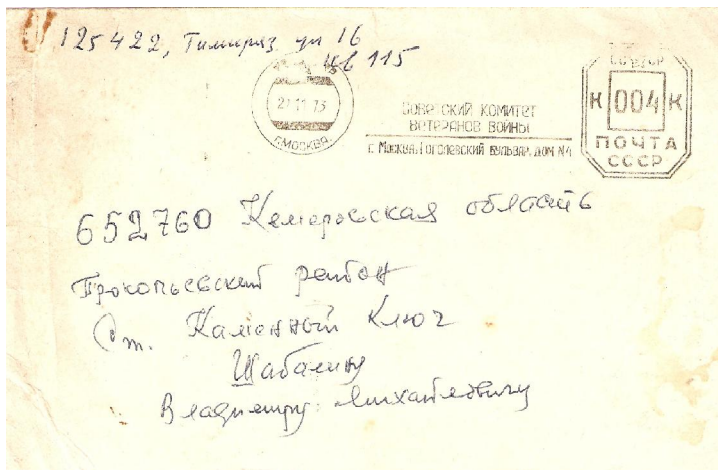 125422, Тимиряз ул 16
кв 115
27 11 73
г. МОСКВА
СОВЕТСКИЙ КОМИТЕТ
ВЕТЕРАНОВ ВОЙНЫ
г. Москва, Гоголевский бульвар, дом №4
СССР
К 004 К
ПОЧТА
СССР
652760 Кемеровская область
Прокопьевский район
ст. Каменный Ключ
Шабалину
Владимиру Михайловичу